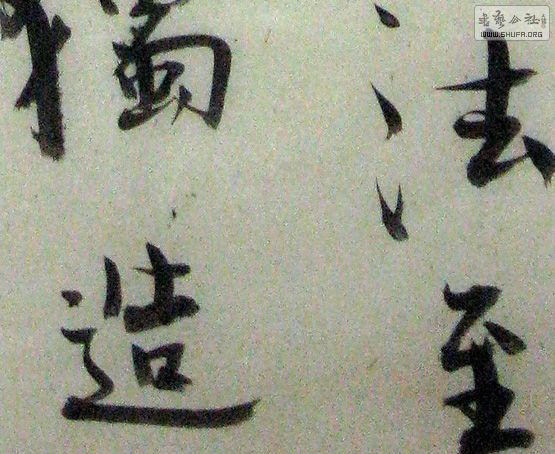 法至
獨造
书艺公社
WWW.SHUFA.ORG